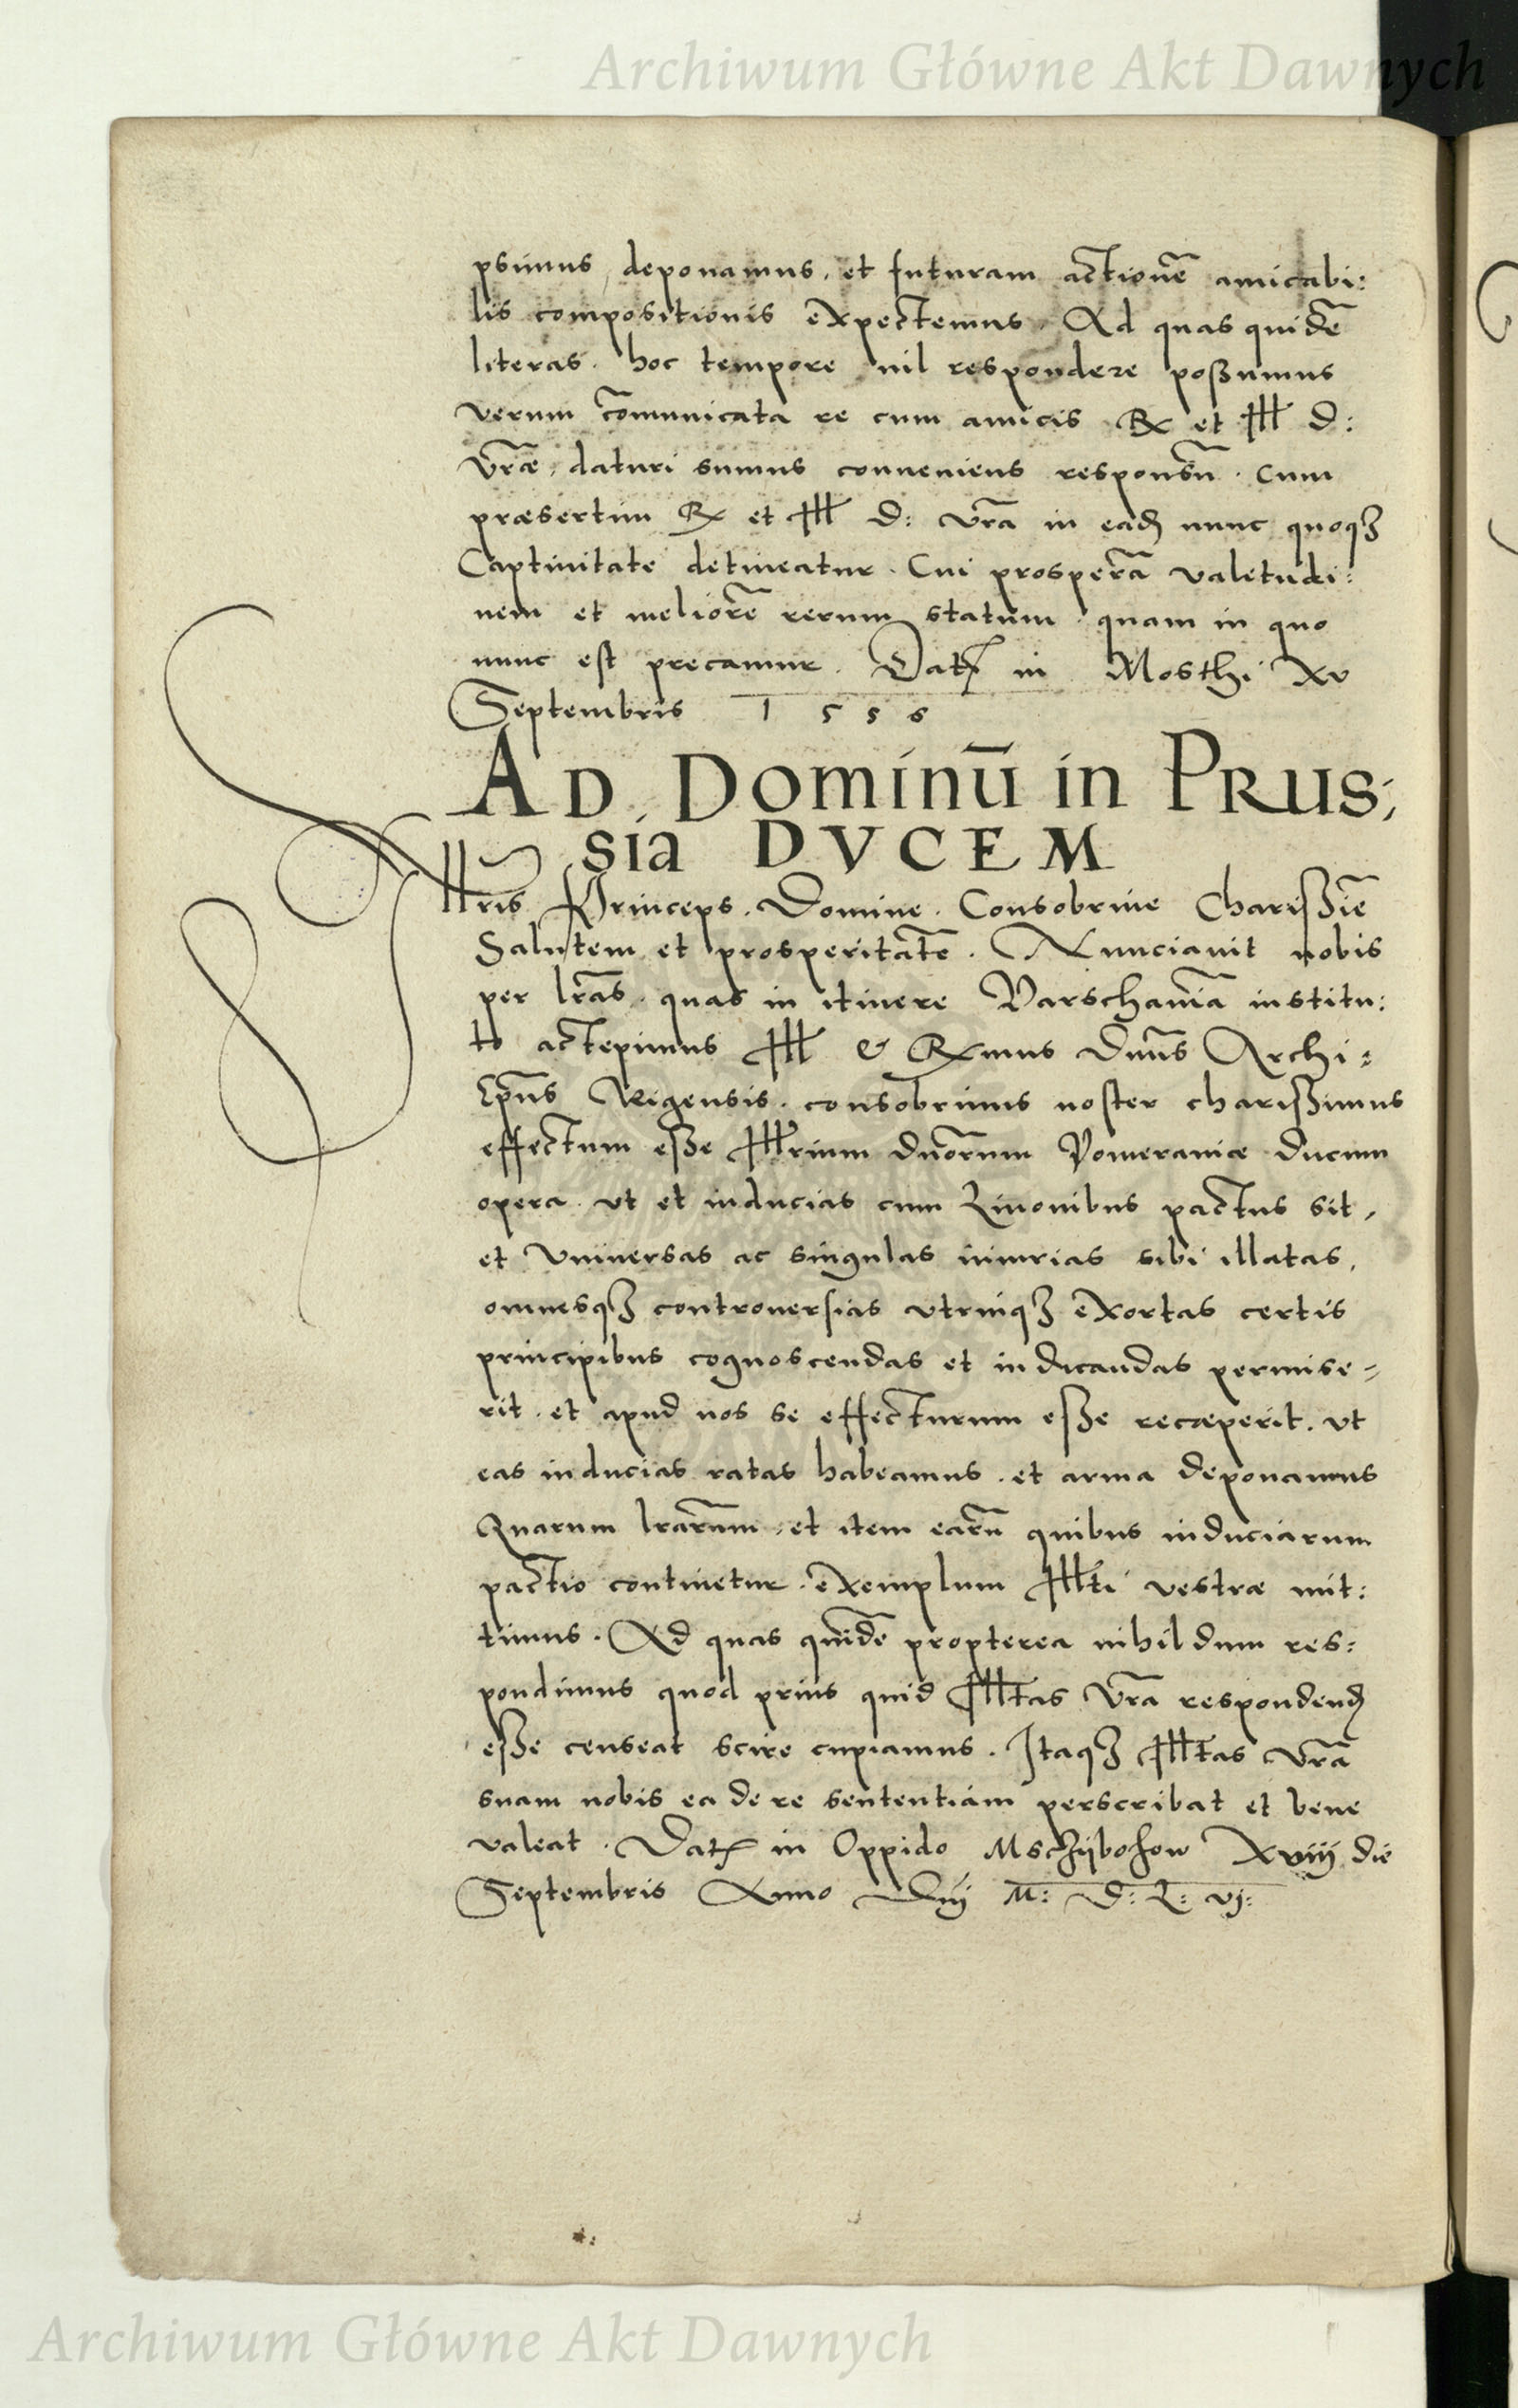 Archiwum Główne Akt Dawnych
psimus, deponamus, et futuram actionē amicabi:
lis compositionis expectemus. Ad quas quidē
literas. hoc tempore nil respondere possumus
verum cōmunicata re cum amicis Rx et Ill D:
vrāe daturi sumus conueniens responsū. Cum
præsertim Rx et Ill D: vrā in eadē nunc quoqȝ
Captiuitate detineatur. Cui prosperā valetudi:
nem et meliorē rerum statum quam in quo
nunc est precamur. Datē in Mosthi xv
Septembris 1556
AD Dominū in PRus;
sia DVCEM
Illris Princeps. Domine. Consobrine Charissīe
Salutem et prosperitatē. Nunciauit nobis
per lrās. quas in itinere Varschauiā institu:
to accepimus Ill & Rxmus Dnūs Archi:
Epūs Rigensis. consobrinus noster charissimus
effectum esse Illrium dnōrum Pomeraniæ ducum
opera. vt et inducias cum Liuonibus pactus sit,
et vniuersas ac singulas iniurias sibi illatas,
omnesqȝ controuersias vtrinqȝ exortas certis
principibus cognoscendas et indicandas permise-
rit. et apud nos se effecturum esse recæperit. vt
eas inducias ratas habeamus. et arma deponamus
Quarum lrārum. et item earū quibus induciarum
pactio continetur. exemplum Illti vestræ mit:
timus. Ad quas quidē propterea nihil dum res:
pondimus quod prius quid Illtas vrā respondendē
esse censeat scire cupiamus. Itaqȝ Illtas vrā
suam nobis ea de re sententiam perscribat et bene
valeat. Datē in Oppido Mschijbohow xviij die
Septembris Anno Dnj M: D: L: vj:
Archiwum Główne Akt Dawnych